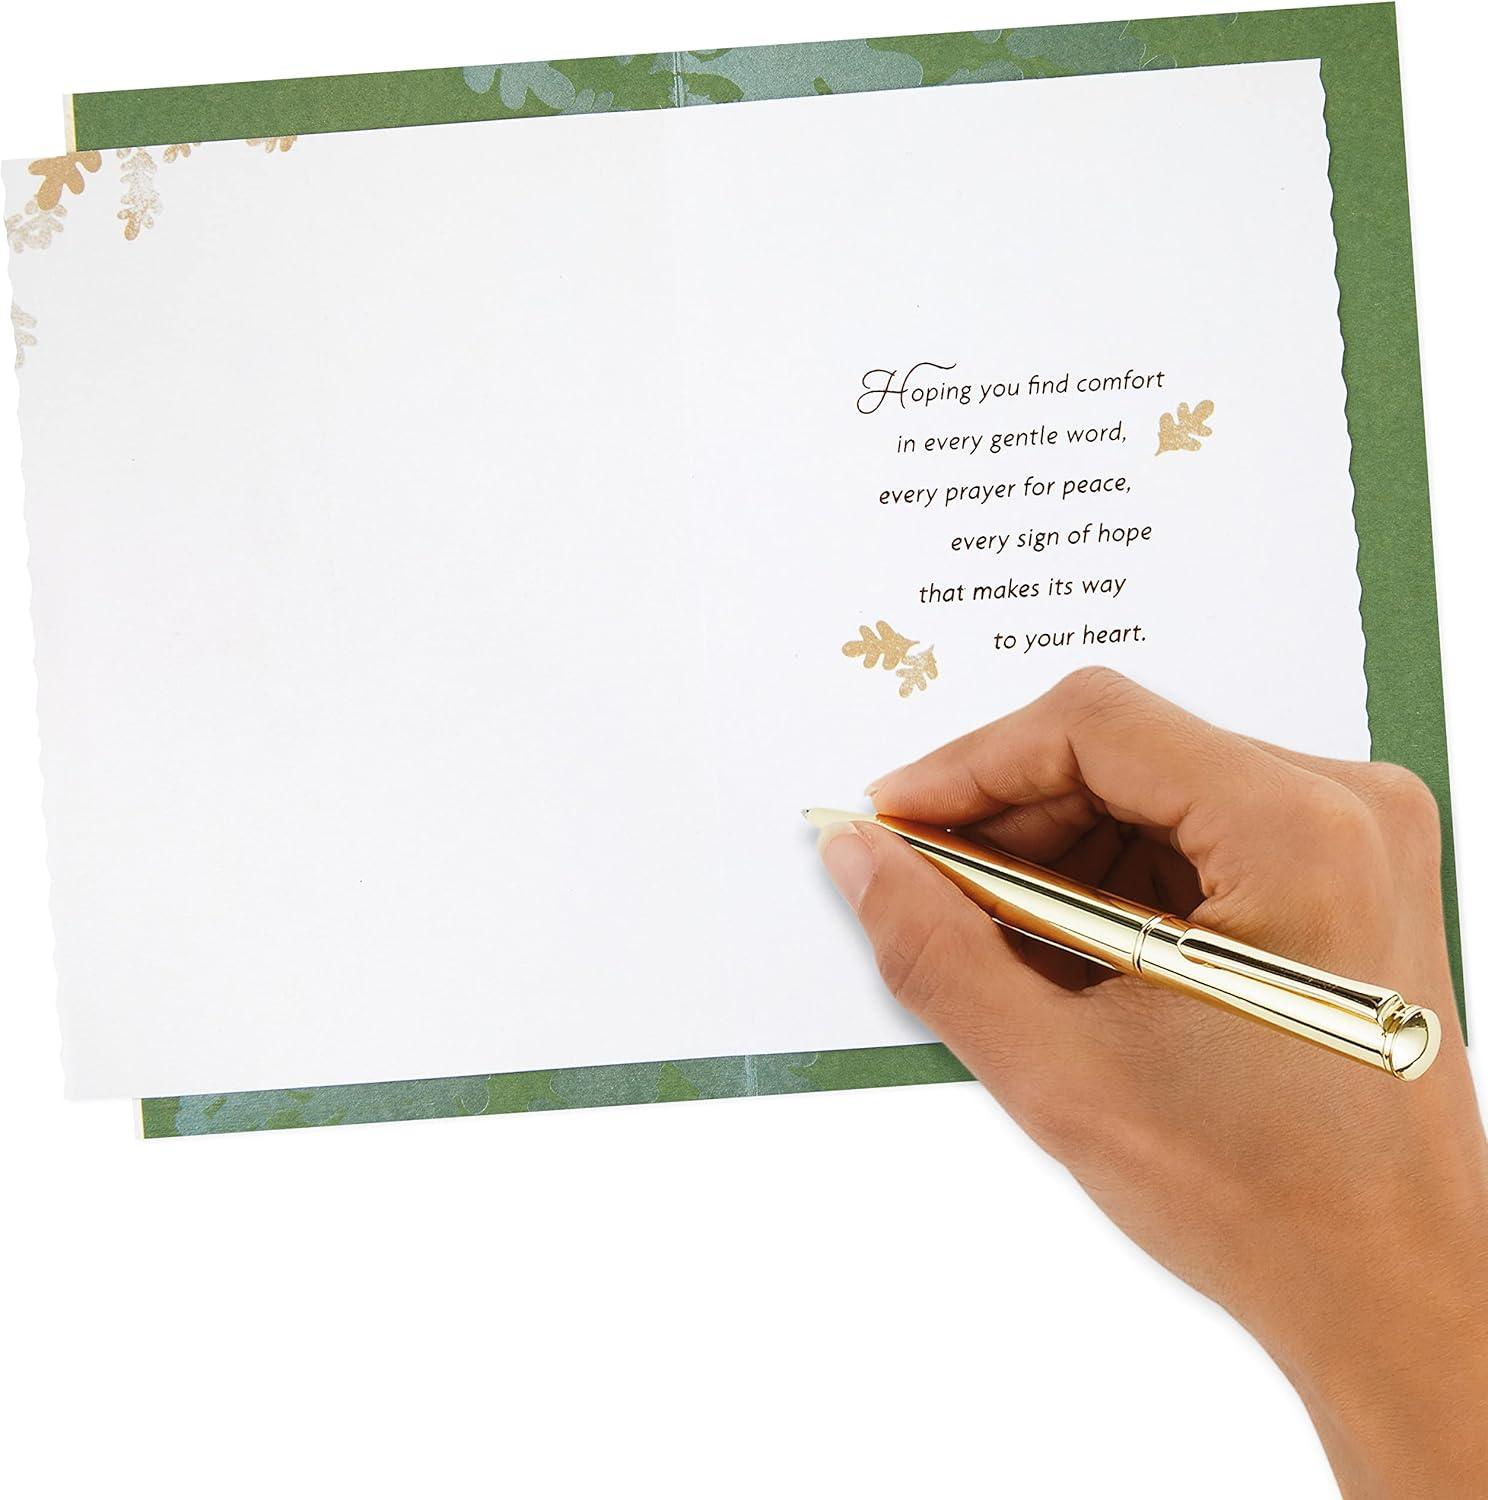 Hoping you find comfort
in every gentle word,
every prayer for peace,
every sign of hope
that makes its way
to your heart.